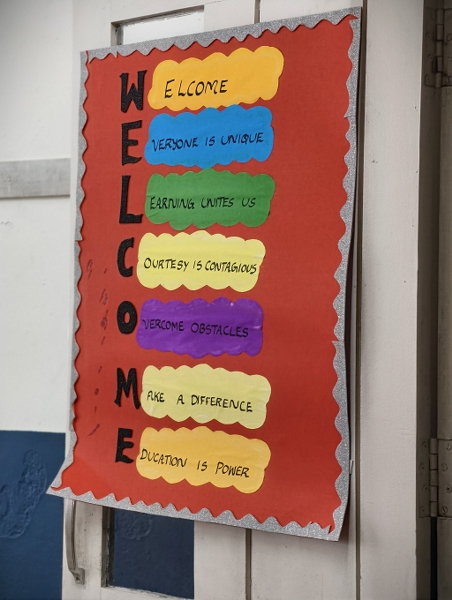 WELCOME
EVERYONE IS UNIQUE
LEARNING UNITES US
COURTESY IS CONTAGIOUS
OVERCOME OBSTACLES
MAKE A DIFFERENCE
EDUCATION IS POWER